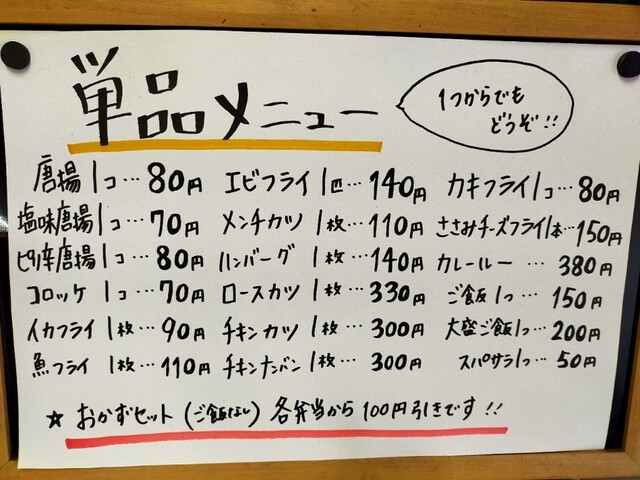 単品メニュー
1つからでも
どうぞ!!
唐揚1コ…80円 エビフライ1匹…140円 カキフライ1コ…80円
塩味唐揚1コ…70円 メンチカツ1枚…110円 ささみチーズフライ1本…150円
ピリ辛唐揚1コ…80円 ハンバーグ1枚…140円 カレールー…380円
コロッケ1コ…70円 ロースカツ1枚…330円 ご飯1つ…150円
イカフライ1枚…90円 チキンカツ1枚…300円 大盛ご飯1つ…200円
魚フライ1枚…110円 チキンナンバン1枚…300円 スパサラ1つ…50円
☆おかずセット(ご飯なし)各弁当から100円引きです!!